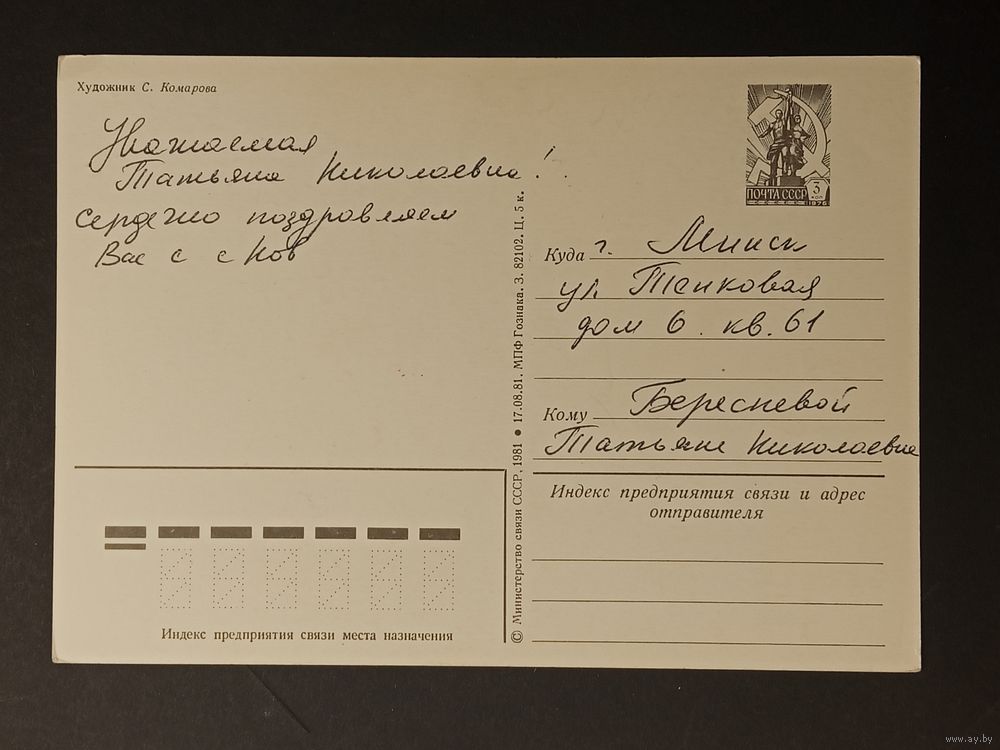 Художник С. Комарова
Уважаемая
Татьяна Николаевна!
Сердечно поздравляем
Вас с с Нов
© Министерство связи СССР, 1981 ● 17.08.81. МПФ Гознака. З. 82102. Ц. 5 к.
ПОЧТА СССР 3 КОП
1976
Куда г. Минск
ул. Танковая
дом 6. кв. 61
Кому Бересневой
Татьяне Николаевне
Индекс предприятия связи и адрес
отправителя
Индекс предприятия связи места назначения
www.ay.by